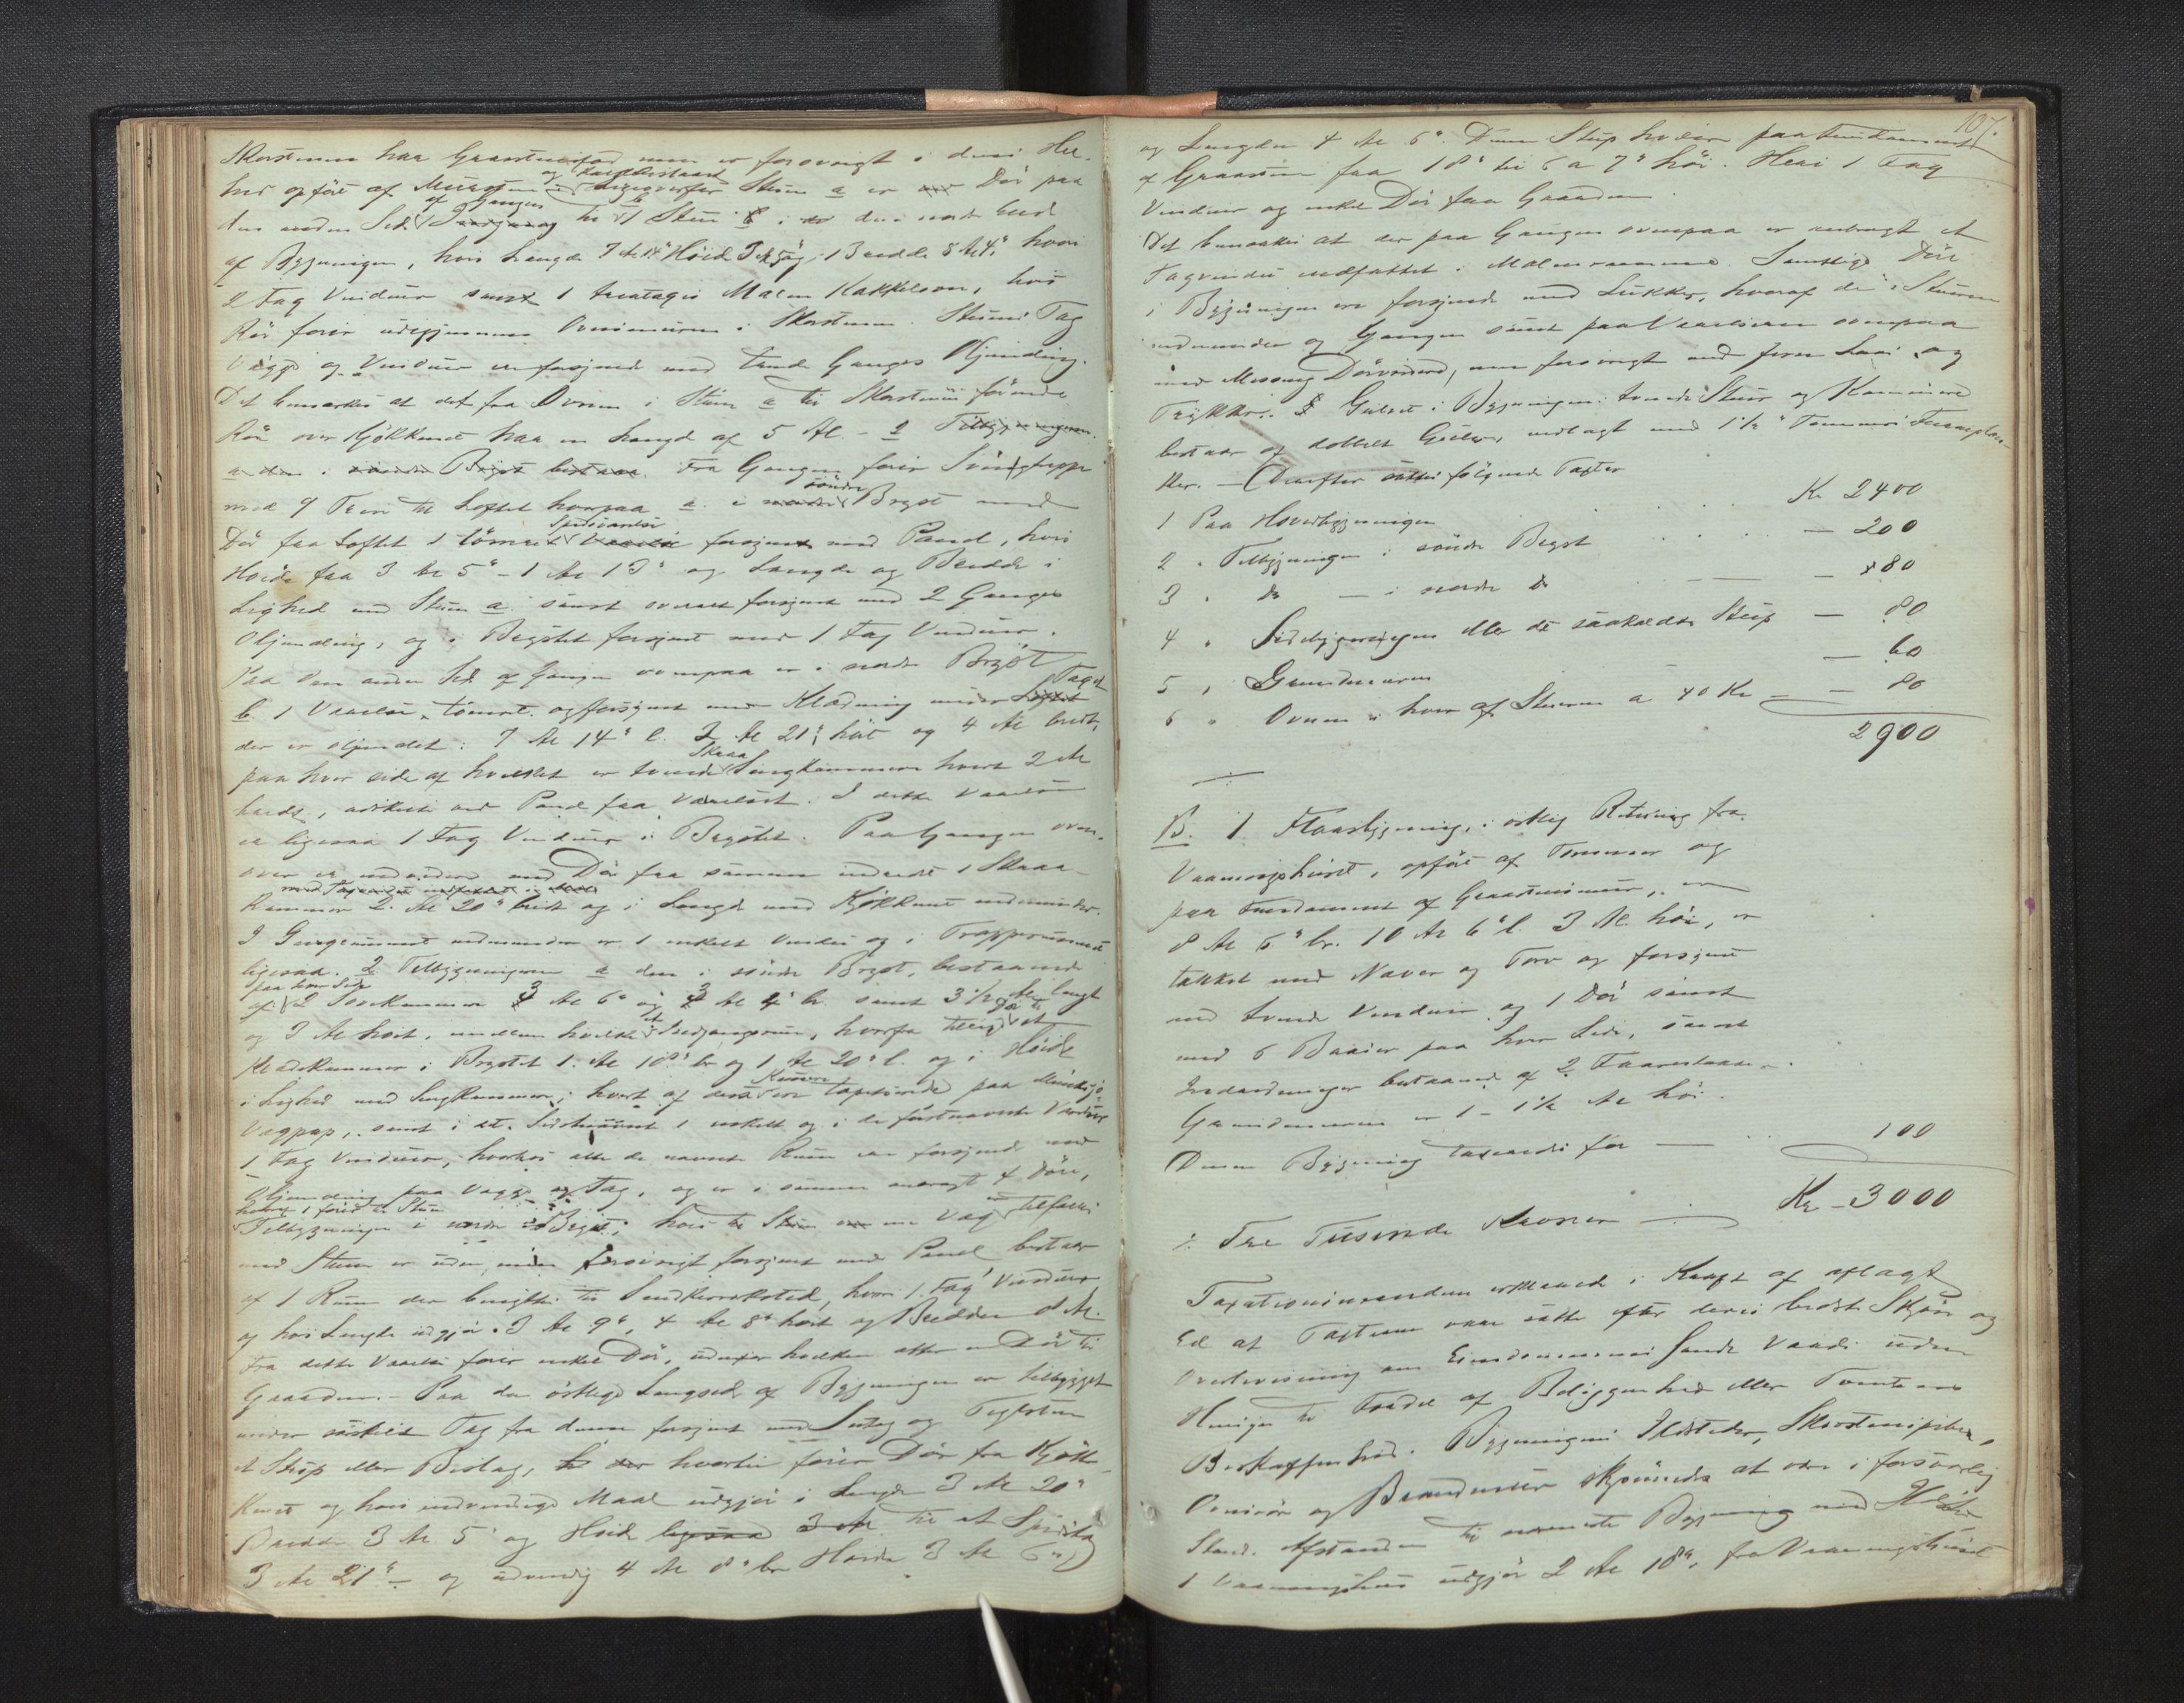 Skorstenen har Graastensfod men er forøvrigt i dens Hel-
hed opført af Mursten og Ligeoverfor Stuen a er Dør paa
den anden Side af Gangen til 1 Stue b i den nordre Ende
af Bygningen, hvis Længde 7 Al 14" Høide Bredde 8 Al 4", hvori
2 Fag Vinduer samt 1 treetages Malm Kakkelovn, hvis
Rør fører udigjennem Ovnsmuren i Skorstenen. Stuens Tag
Vægge og Vinduer ere forsynede med tvende Ganges Oljemaling.
Det bemærkes at det fra Ovnen i Stuen a til Skorstenen førende
Rør over Kjøkkenet har en Længde af 5 Al. - 2 Tilbygningen
a den i søndre Bryst bestaar. Fra Gangen fører Svingtrappe
med 9 Trin til Loftet hvorpaa a. i søndre Bryst med
Dør fra Loftet 1 tømret Værelse forsynet med Panel, hvis
Høide fra 3 Al 5" - 1 Al 13" og Længde og Bredde i
Lighed med Stuen a samt overalt forsynet med 2 Ganges
Oljemaling, og i Brystet forsynet med 1 Fag Vinduer.
Paa den anden Side af Gangen ovenpaa er i nordre Bryst
b. 1 Værelse, tømret og forsynet med Klædning under Taget
der er oljemalet: 7 Al 14" l. 3 Al 21" høit og 4 Al bredt,
paa hver side af hvilket er tvende Skraa Sengkammere hvert 2 Al
brede, adskilte ved Panel fra Værelset. I dette Værelse
er ligesaa 1 Fag Vinduer i Brystet. Paa Gangen oven-
over er med Dør fra samme indredet 1 Skraa-
Kammer 2 Al 20" bredt og i Længde med Kjøkkenet nedenunder.
I Gangrummet nedenunder er 1 enkelt Vindu og i Trapperummet
ligesaa. 2 Tilbygningerne a den i søndre Bryst, bestaaende
af paa hver Side 2 Sovekammere 3 Al 6" og 3 Al 4" br. samt 3 1/2 Al langt
og 3 Al høit, mellem hvilke et Indgangsrum, hvorfra tillige Dør til et
Klædekammer i Brystet 1 Al 10" br og 1 Al 20" l. og i Høide
i Lighed med Sengkammere, hvert af disse Rum ere tapetserede paa
Vægpap, samt i et Sidstnævnt 1 enkelt og i de førstnævnte Værelser
1 Fag Vinduer, hvorhos alle de nævnte Rum ere forsynede med
Oljemaling paa Vægge og Tag, og er i samme anbragt 4 Døre,
hvoraf 1 fører til Stuen
Tilbygningen i nordre Bryst, hvis til Stuen Væg tilfælles
med Stuen er uden, men forøvrigt forsynet med Panel bestaar
af 1 Rum der benyttes til Snedkerværksted, hvori 1 Fag Vinduer
og hvis Længde udgjør 3 Al 9", 4 Al 8" høit og Bredden 8 Al.
Fra dette Værelse fører enkel Dør, udenfor hvilken atter en Dør til
Gaarden. Paa den østlige Langside af Bygningen er tilbygget
under særskilt Tag fra denne forsynet med Sutag og Teglsten
et Skup eller Bislag, hvortil fører Dør fra Kjøk-
kenet og hvis indvendige Maal udgjør i Længde 3 Al 20"
Bredde 3 Al 5" og Høide til et Spidstag
3 Al 21" - og udvendig 4 Al 8" br Høide 3 Al 6"
107.
og Længden 4 Al 6". Denne Skup hviler paa Fundament
af Graasten fra 18" til 6 a 7" høi. Heri 1 Fag
Vinduer og enkel Dør fra Gaarden
Det bemærkes at der paa Gangen ovenpaa er anbragt et
Tagvindu indfattet i Malmramme. Samtlige Døre
i Bygningen ere forsynede med Lukker, hvoraf de i Stuerne
nedenunder og Gangen samt paa Værelserne ovenpaa
med Messing Dørvridere, men forøvrigt med Jern Laas og
Trykker. Gulvet i Bygningens tvende Stuer og Kammere
bestaar af dobbelt Gulve, indlagt med 1 1/2" Tommers Furuplan-
ker. - Derefter sattes følgende Taxter
1 Paa Hovedbygningen . . . Kr 2400
2 " Tilbygningen i søndre Bryst . . . - 200
3 " do - i nordre do - 80
4 " Sidebygningen eller det saakaldte Skup - 80
5 " Grundmuren - 60
6 " Ovnen i hver af Stuerne a 40 Kr - 80
2900
B. 1. Floarbygning, i østlig Retning fra
Vaaningshuset, opført af Tømmer og
paa Fundament af Graastensmuur,
8 Al 6" br. 10 Al 6" l. 3 Al. høi, er
takket med Næver og Torv og forsynet
med tvende Vinduer og 1 Dør samt
med 6 Baaser paa hver Side, samt
Indredninger bestaaende af 2 Faarestaaer.
Grundmuren er 1 - 1 1/2 Al høi.
Denne Bygning taxeredes for - 100
Kr - 3000
/: Tre Tusinde Kroner
Taxationsmændene erklærede i Kraft af aflagt
Ed at Taxterne vare satte efter deres bedste Skjøn og
Overbevisning om Eiendommenes sande Værdi uden
Hensyn til Fordel af Beliggenhed eller Tomtens
Beskaffenhed. Bygningens Ildsteder, Skorstenspiber,
Ovnsrør og Brandmure skjønnedes at være i forsvarlig
Stand. Afstanden til nærmeste Bygning med Ildsted
1 Vaaningshuus udgjør 2 Al 18", fra Vaaningshuset